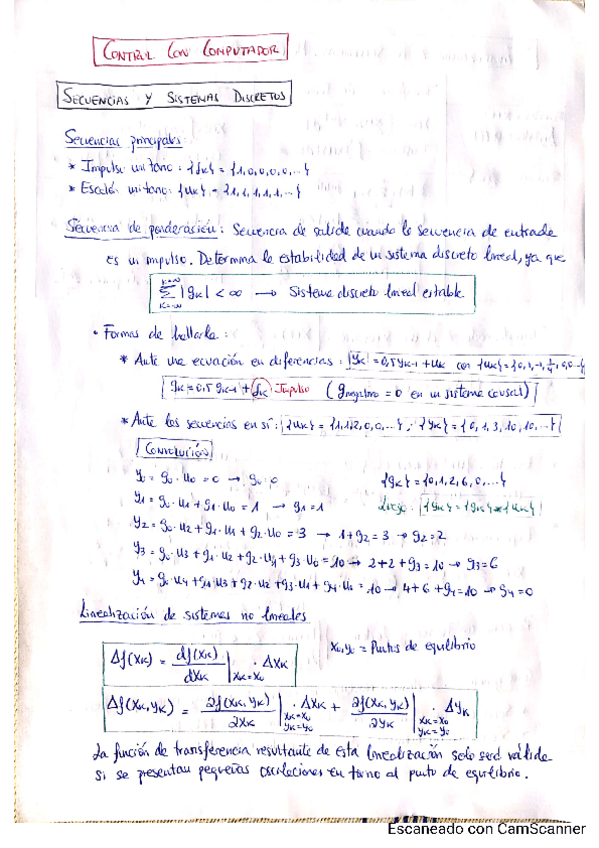 CONTROL CON COMPUTADOR
SECUENCIAS Y SISTEMAS DISCRETOS
Secuencias principales:
* Impulso unitario: {δk} = {1,0,0,0,0,...}
* Escalón unitario: {uk} = {1,1,1,1,1,...}
Secuencia de ponderación: Secuencia de salida cuando la secuencia de entrada
es un impulso. Determina la estabilidad de un sistema discreto lineal, ya que
k=∞
Σ |gk| < ∞ → Sistema discreto lineal estable
k=-∞
• Formas de hallarla:
* Ante una ecuación en diferencias: yk = 0,5yk-1 + uk con {uk} = {0,3,-1,
gk = 0,5 gk-1 + δk Impulso (gnegativo = 0 en un sistema causal)
* Ante las secuencias en sí: {uk} = {1,1,2,0,0,...}, {yk} = {0,1,3,10,10,...}
CONVOLUCIÓN
y0 = g0·u0 = 0 → g0 = 0 {gk} = {0,1,2,6,0,...}
y1 = g0·u1 + g1·u0 = 1 → g1 = 1 Luego: {yk} = {gk} * {uk}
y2 = g0·u2 + g1·u1 + g2·u0 = 3 → 1+g2 = 3 → g2 = 2
y3 = g0·u3 + g1·u2 + g2·u1 + g3·u0 = 10 → 2+2+g3 = 10 → g3 = 6
y4 = g0·u4 + g1·u3 + g2·u2 + g3·u1 + g4·u0 = 10 → 4+6+g4 = 10 → g4 = 0
Linealización de sistemas no lineales
Δf(xk) = df(xk)/dxk |xk=x0 · Δxk x0,y0 = Puntos de equilibrio
Δf(xk,yk) = ∂f(xk,yk)/∂xk |xk=x0 yk=y0 · Δxk + ∂f(xk,yk)/∂yk |xk=x0 yk=y0 · Δyk
La función de transferencia resultante de esta linealización solo será válida
si se presentan pequeñas oscilaciones en torno al punto de equilibrio.
Escaneado con CamScanner